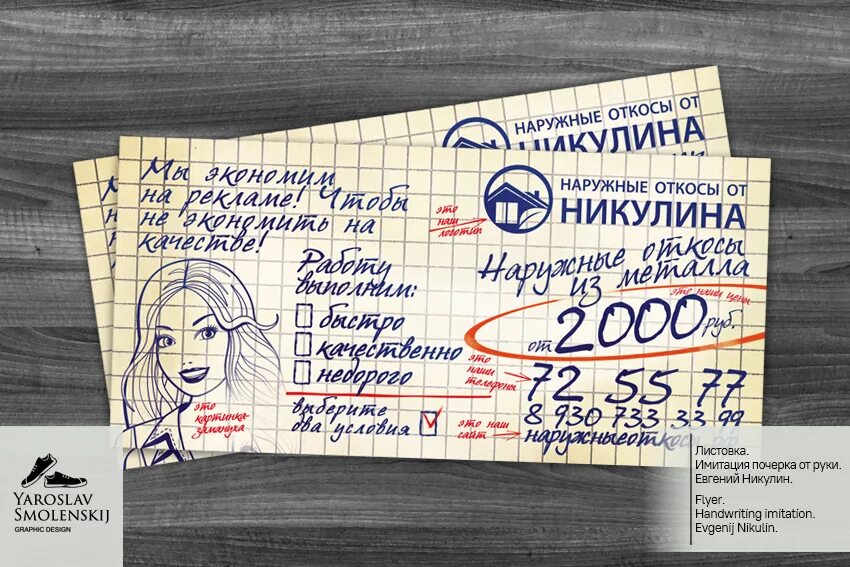 НАРУЖНЫЕ ОТКОСЫ ОТ
НИКУЛИНА
Мы экономим
на рекламе! Чтобы
не экономить на
качестве!
это
наш
логотип
НАРУЖНЫЕ ОТКОСЫ ОТ
НИКУЛИНА
Наружные откосы
из металла
это наши цены
от 2000 руб.
Работу
выполним:
быстро
качественно
недорого
выберите
два условия
это
картинка-
замануха
это
наши
телефоны
72 55 77
8 930 733 33 99
это наш
сайт
наружныеоткосы.рф
YAROSLAV
SMOLENSKIJ
GRAPHIC DESIGN
Листовка.
Имитация почерка от руки.
Евгений Никулин.
Flyer.
Handwriting imitation.
Evgenij Nikulin.